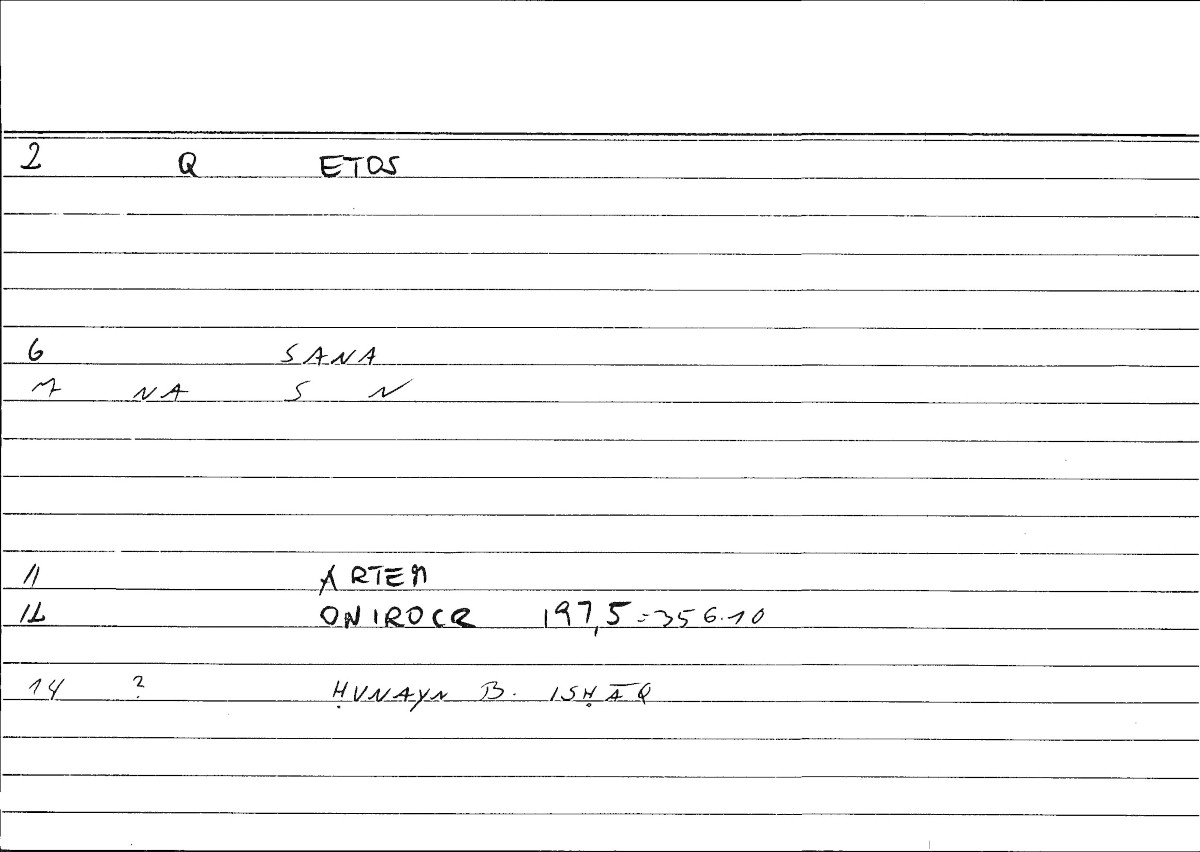 2 Q ETOS
6 SANA
7 NA S N
11 ARTEM
12 ONIROCR 197,5=356.10
14 ? ḤUNAYN B. ISḤĀQ